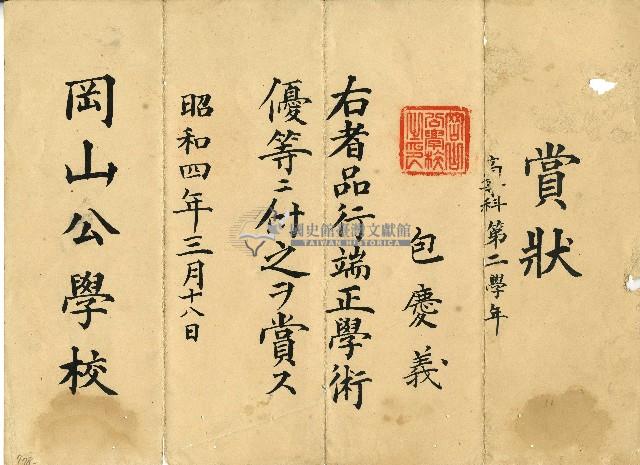 賞狀
高等科第二學年
包慶義
右者品行端正學術
優等ニ付之ヲ賞ス
昭和四年三月十八日
岡山公學校
岡山公學校之印
國史館臺灣文獻館
TAIWAN HISTORICA